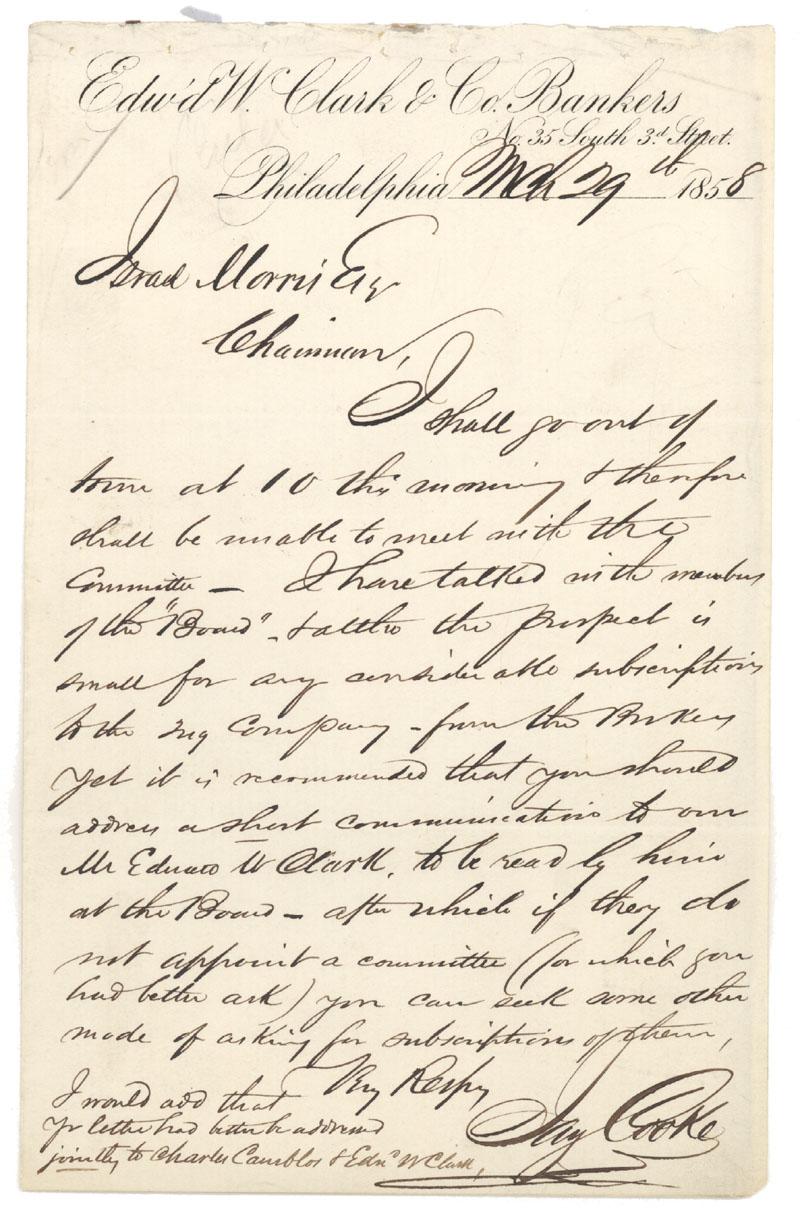 Edw'd W. Clark & Co. Bankers
No. 35 South 3.d Street.
Philadelphia Mch 29th 1858
Israel Morris Esq
Chairman,
I shall go out of
town at 10 this morning & therefore
shall be unable to meet with the
Committee – I have talked with members
of the "Board" – & altho the prospect is
small for any considerable subscriptions
to the Company – from the Brokers
yet it is recommended that you should
address a short communication to our
Mr Edward W Clark, to be read by him
at the Board – after which if they do
not appoint a committee (for which you
had better ask) you can seek some other
mode of asking for subscriptions of them,
Very Respy
Jay Cooke
I would add that
yr letter had better be addressed
jointly to Charles Camblos & Edwd W Clark,